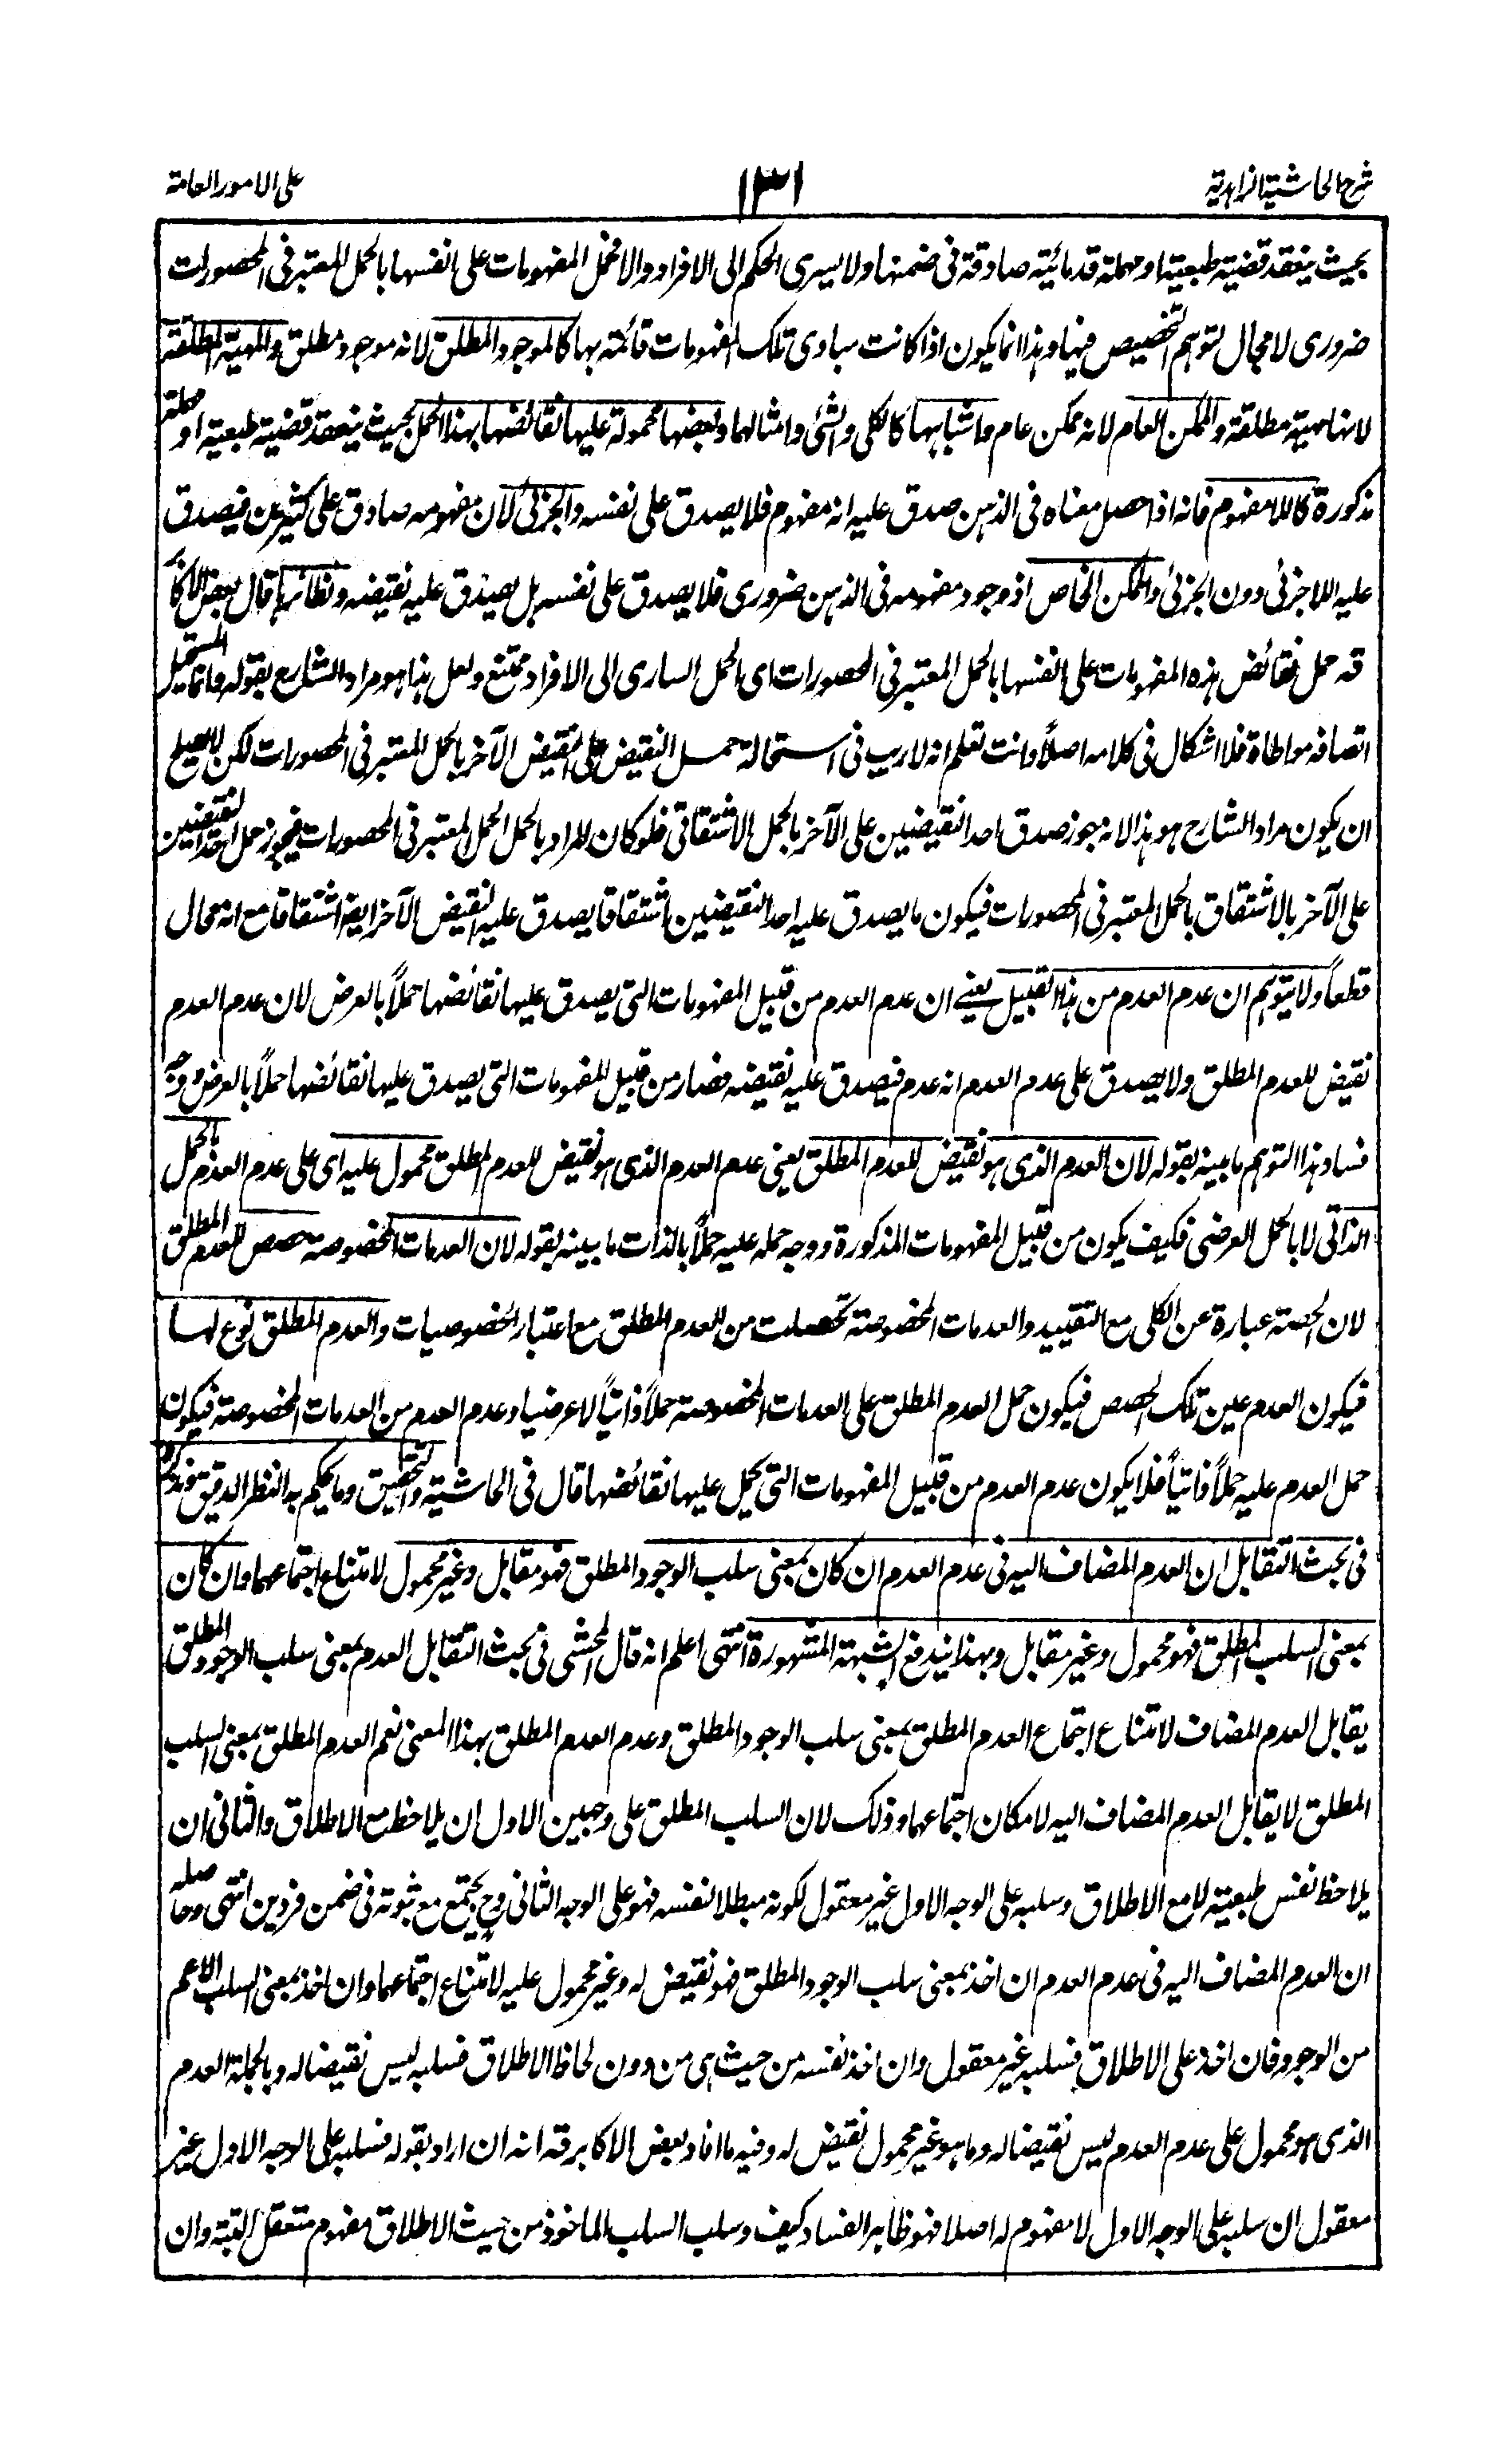 شرح الحاشية الزاهدية
١٣١
على الامور العامة
بحيث ينعقد قضية طبعية او مهملة قدمائية صادقة فى ضمنها ولا يسرى الحكم الى الافراد والا فحمل المفهومات على انفسها بالحمل المعتبر فى المحصورات
ضرورى لا مجال لتوهم التخصيص فيها وهذا انما يكون اذا كانت مبادى تلك المفهومات قائمة بها كالموجود المطلق لانه موجود مطلق والمهية المطلقة
لانها مهية مطلقة والممكن العام لانه ممكن عام واشباهها كالكلى والشئ وامثالهما وبعضها محمولة عليها نقائضها بهذا الحمل بحيث ينعقد قضية طبعية او مهملة
مذكورة كاللامفهوم فانه اذا حصل معناه فى الذهن صدق عليه انه مفهوم فلا يصدق على نفسه والجزئى لان مفهومه صادق على كثيرين فيصدق
عليه اللاجزئى دون الجزئى والممكن الخاص اذ وجود مفهومه فى الذهن ضرورى فلا يصدق على نفسه بل يصدق عليه نقيضه ونظائرها قال بعض الاكا
قه حمل نقائض هذه المفهومات على انفسها بالحمل المعتبر فى المحصورات اى الحمل السارى الى الافراد ممتنع ولعل هذا هو مراد الشارح بقوله وانما يستحيل
اتصافه مواطاة فلا اشكال فى كلامه اصلاً وانت تعلم انه لا ريب فى استحالة حمل النقيض على النقيض الآخر بالحمل المعتبر فى المحصورات لكن لا يصلح
ان يكون مراد الشارح هو هذا لانه جوز صدق احد النقيضين على الآخر بالحمل الاشتقاقى فلو كان المراد بالحمل الحمل المعتبر فى المحصورات فيجوز حمل احد النقيضين
على الآخر بالاشتقاق بالحمل المعتبر فى المحصورات فيكون ما يصدق عليه احد النقيضين اشتقاقا يصدق عليه النقيض الآخر ايضا اشتقاقا مع انه محال
قطعاً ولا يتوهم ان عدم العدم من هذا القبيل يعنى ان عدم العدم من قبيل المفهومات التى يصدق عليها نقائضها حملاً بالعرض لان عدم العدم
نقيض للعدم المطلق ولا يصدق على عدم العدم انه عدم فيصدق عليه نقيضه فصار من قبيل المفهومات التى يصدق عليها نقائضها حملاً بالعرض ووجه
فساد هذا التوهم ما بينه بقوله لان العدم الذى هو نقيض للعدم المطلق يعنى عدم العدم الذى هو نقيض للعدم المطلق محمول عليه اى على عدم العدم بالحمل
الذاتى لا بالحمل العرضى فكيف يكون من قبيل المفهومات المذكورة ووجه حمله عليه حملاً بالذات ما بينه بقوله لان العدمات المخصوصة حصص للعدم المطلق
لان الحصة عبارة عن الكلى مع التقييد والعدمات المخصوصة تحصلت من العدم المطلق مع اعتبار الخصوصيات والعدم المطلق نوع لها
فيكون العدم عين تلك الحصص فيكون حمل العدم المطلق على العدمات المخصوصة حملاً ذاتياً لا عرضيا وعدم العدم من العدمات المخصوصة فيكون
حمل العدم عليه حملاً ذاتياً فلا يكون عدم العدم من قبيل المفهومات التى يحمل عليها نقائضها قال فى الحاشية والتحقيق وما يحكم به النظر الدقيق
فى بحث التقابل ان العدم المضاف اليه فى عدم العدم ان كان بمعنى سلب الوجود المطلق فهو مقابل وغير محمول لامتناع اجتماعهما وان كان
بمعنى السلب المطلق فهو محمول وغير مقابل وبهذا يندفع الشبهة المشهورة انتهى اعلم انه قال المحشى فى بحث التقابل العدم بمعنى سلب الوجود المطلق
يقابل العدم المضاف لامتناع اجتماع العدم المطلق بمعنى سلب الوجود المطلق وعدم العدم المطلق بهذا المعنى نعم العدم المطلق بمعنى السلب
المطلق لا يقابل العدم المضاف اليه لامكان اجتماعهما وذلك لان السلب المطلق على وجهين الاول ان يلاحظ مع الاطلاق والثانى ان
يلاحظ نفس طبعية لا مع الاطلاق وسلبه على الوجه الاول غير معقول لكونه مبطلا لنفسه فهو على الوجه الثانى وح يجتمع مع ثبوته فى ضمن فردين انتهى وحاصله
ان العدم المضاف اليه فى عدم العدم ان اخذ بمعنى سلب الوجود المطلق فهو نقيض له وغير محمول عليه لامتناع اجتماعهما وان اخذ بمعنى السلب الاعم
من الوجود فان اخذ على الاطلاق فسلبه غير معقول وان اخذ نفسه من حيث هى من دون لحاظ الاطلاق فسلبه ليس نقيضا له وبالجملة العدم
الذى هو محمول على عدم العدم ليس نقيضا له وما هو غير محمول نقيض له وفيه ما افاد بعض الاكابر قه انه ان اراد بقوله فسلبه على الوجه الاول غير
معقول ان سلبه على الوجه الاول لا مفهوم له اصلا فهو ظاهر الفساد كيف وسلب السلب الماخوذ من حيث الاطلاق مفهوم متعقل البتة وان